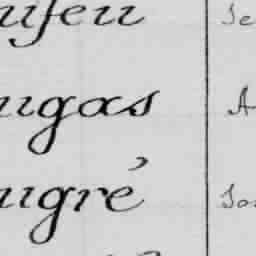 ufeu Je
ugas A
ugré Jo